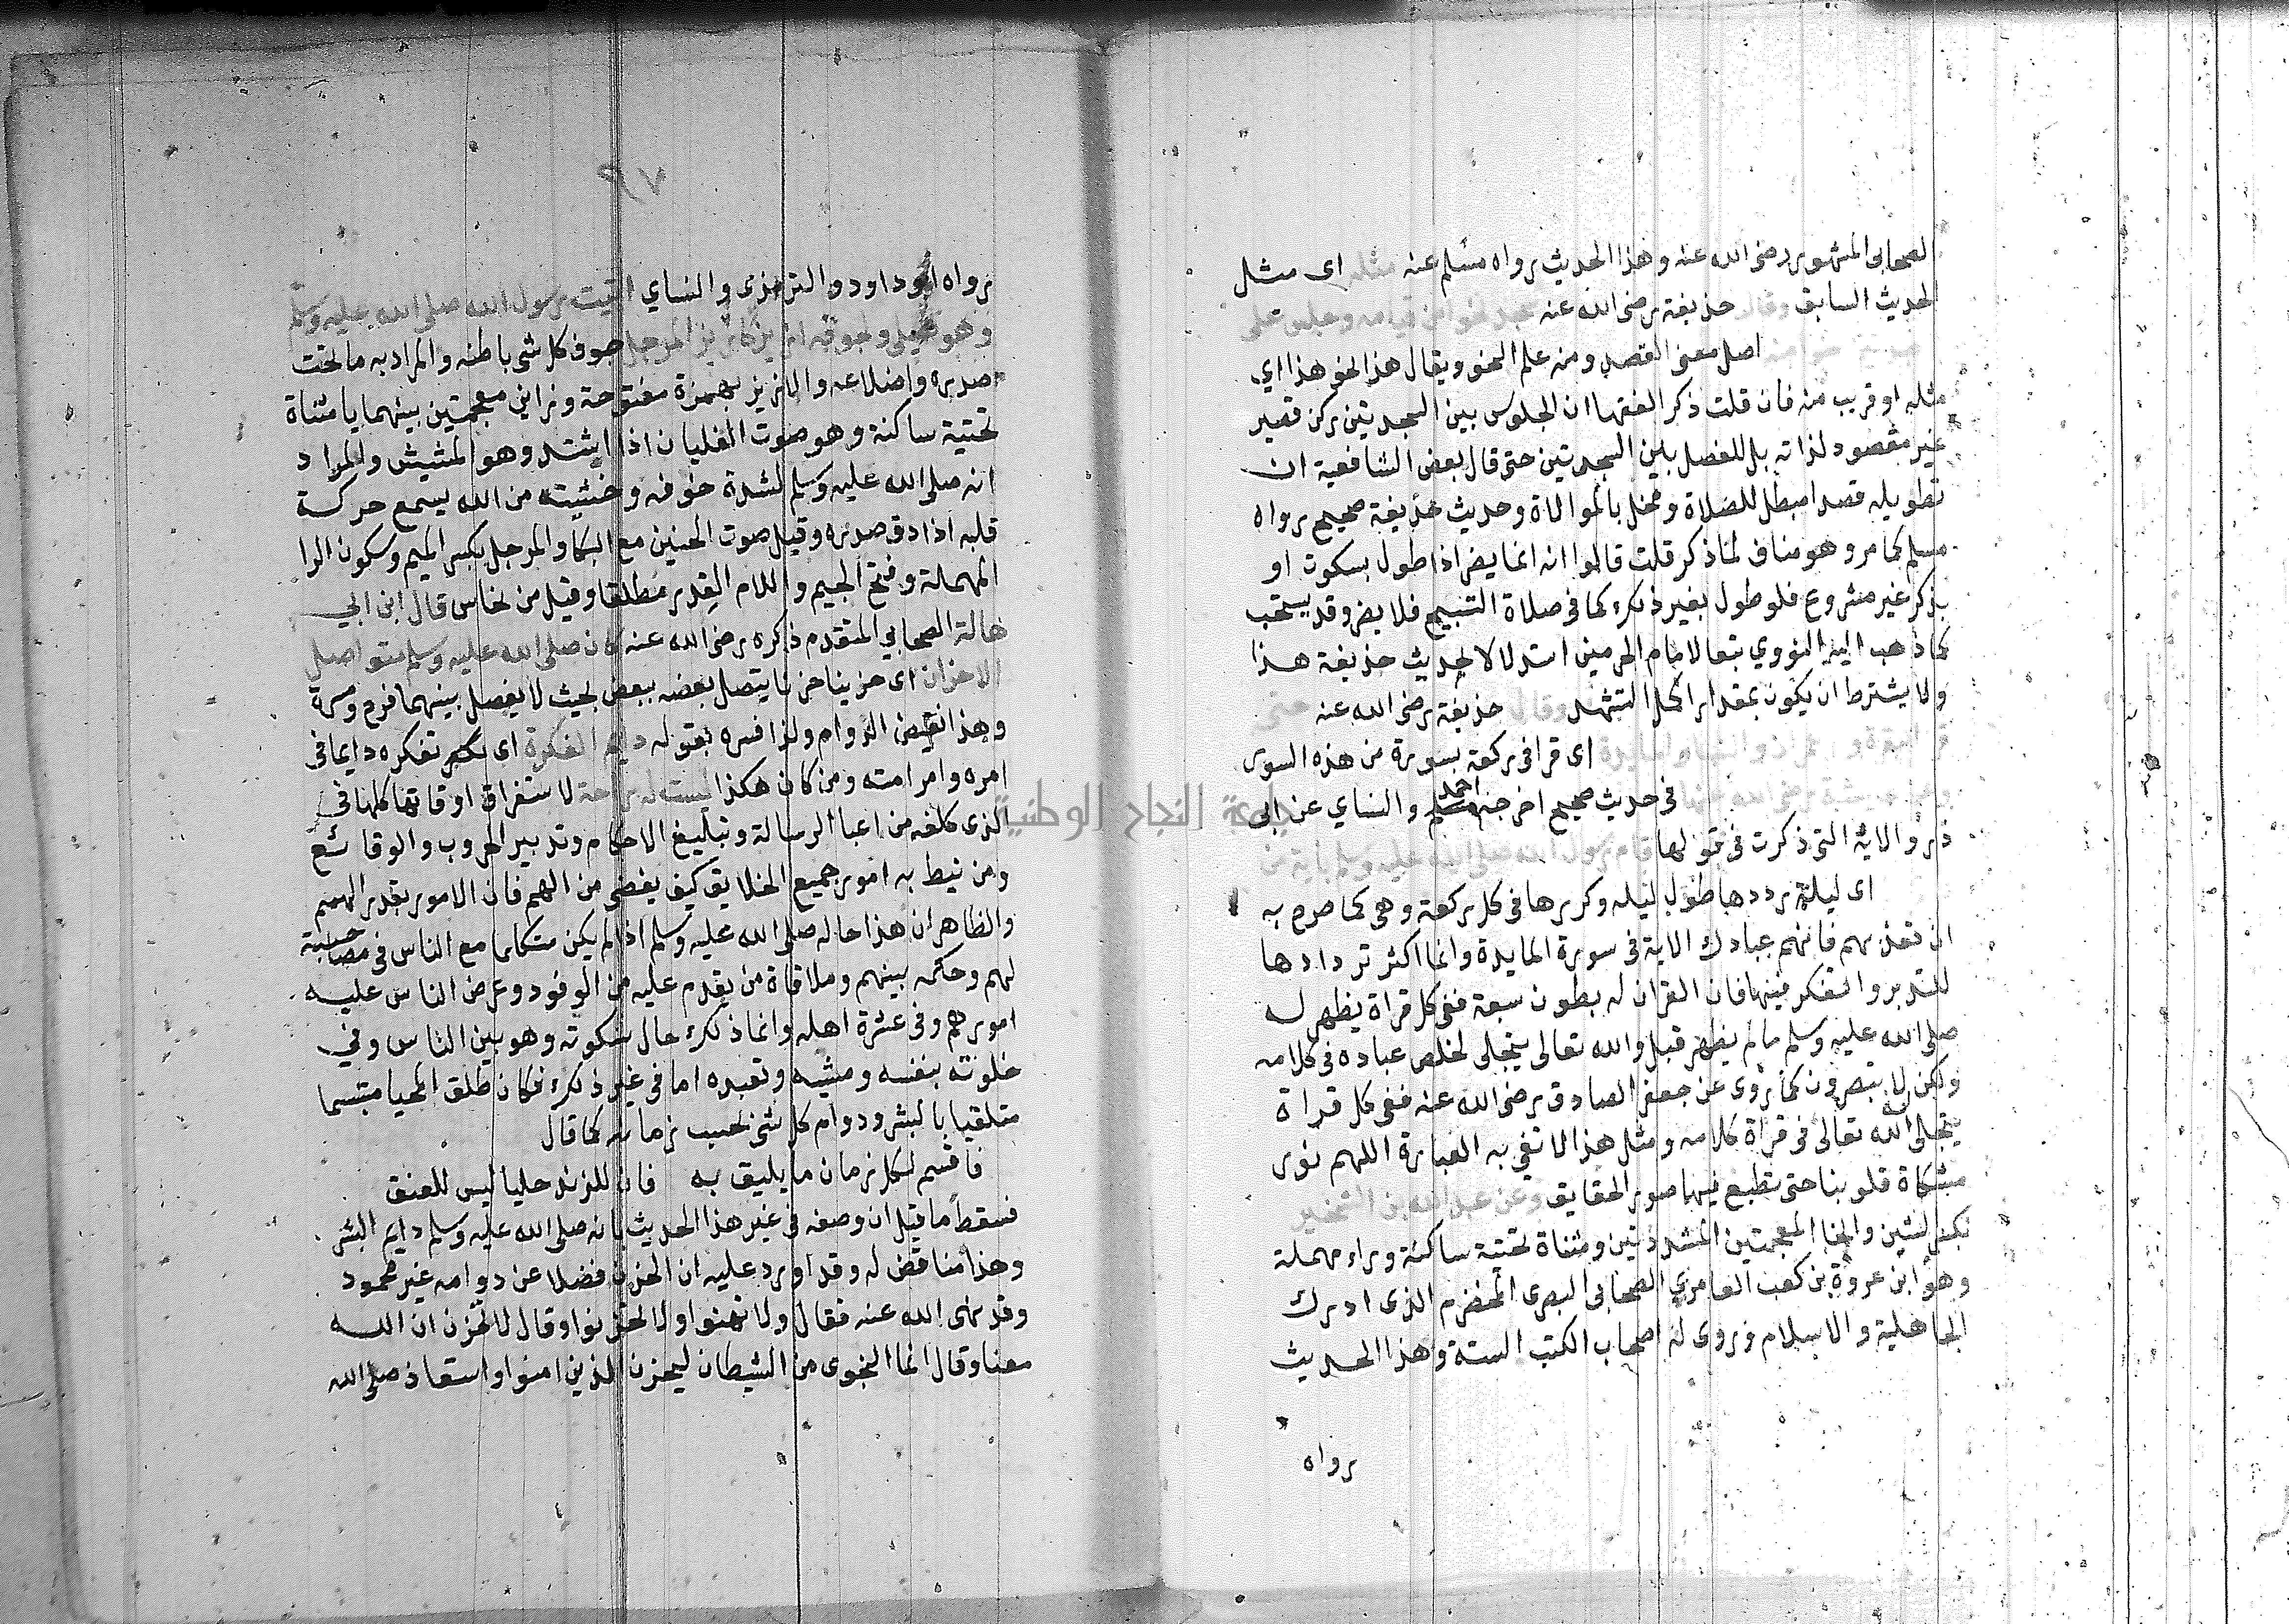 الصحابى المشهور رضى الله عنه وهذا الحديث رواه مسلم عنه مثله اى مثل
الحديث السابق وقال حذيفة رضى الله عنه سجد نحوا من قيامه وجلس بين
اصل معنى القصد ومنه علم النحو ويقال هذا نحو هذا اي
مثله او قريب منه فان قلت ذكر الفقها ان الجلوس بين السجدتين ركن قصير
غير مقصود لذاته بل للفصل بين السجدتين حتى قال بعض الشافعية ان
تطويله قصدا مبطل للصلاة ومخل بالموالاة وحديث حذيفة صحيح رواه
مسلم كما مر وهو مناف لما ذكر قلت قالوا انه انما يضر اذا طول بسكوت او
بذكر غير مشروع فلو طول بغير ذلك كما فى صلاة التسبيح فلا يضر وقد يستحب
كما ذهب اليه النووي تبعا لامام الحرمين استدلالا بحديث حذيفة هذا
ولا يشترط ان يكون بمقدار اكمل التشهد وقال حذيفة رضى الله عنه حتى
اى قرا فى ركعة بسورة من هذه السور
وعن عايشة رضى الله عنها فى حديث صحيح اخرجه احمد والنساي عن ابى
ذر والاية التى ذكرت فى قولها قام رسول الله صلى الله عليه وسلم باية من
اى ليلة يرددها طول ليله وكررها فى كل ركعة وهى كما صرح به
ان تعذبهم فانهم عبادك الاية فى سورة المايدة وانما اكثر تردادها
للتدبر والتفكر فيها فان القران له بطون سبعة ففى كل قراة يظهر له
صلى الله عليه وسلم ما لم يظهر قبل والله تعالى يتجلى لخلص عباده فى كلامه
ولكن لا يبصرون كما روى عن جعفر الصادق رضى الله عنه ففى كل قراة
يتجلى الله تعالى فى قراة كلامه ومثل هذا لا تفى به العبارة اللهم نور
مشكاة قلوبنا حتى تطبع فيها صور الحقايق وعن عبد الله بن الشخير
بكسر الشين والخا المعجمتين المشددتين ومثناة تحتية ساكنة وراء مهملة
وهو ابن عروة بن كعب العامري الصحابى البصرى المخضرم الذى ادرك
الجاهلية والاسلام وروى له اصحاب الكتب الستة وهذا الحديث
رواه
٩٧
رواه ابو داود والترمذى والنساي اتيت رسول الله صلى الله عليه وسلم
وهو يصلى ولجوفه ازيز كازيز المرجل جوف كل شى باطنه والمراد به ما تحت
صدره واضلاعه والازيز بهمزة مفتوحة وزاين معجمتين بينهما يا مثناة
تحتية ساكنة وهو صوت الغليان اذا اشتد وهو المشيش والمراد
انه صلى الله عليه وسلم لشدة خوفه وخشيته من الله يسمع حركة
قلبه اذا دق صدره وقيل صوت الحنين مع البكا والمرجل بكسر الميم وسكون الرا
المهملة وفتح الجيم واللام القدر مطلقا وقيل من نحاس قال ابن ابي
هالة الصحابي المتقدم ذكره رضى الله عنه كان صلى الله عليه وسلم متواصل
الاحزان اى حزينا حزنا يتصل بعضه ببعض بحيث لا يفصل بينهما فرح ومسرة
وهذا نقيض الدوام ولذا فسره بقوله دايم الفكرة اى تكثر تفكره دايما فى
امره وامر امته ومن كان هكذا ليست له راحة لاستغراق اوقاتها كلها فى
الذى كلفه من اعبا الرسالة وتبليغ الاحكام وتدبير الحروب والوقائع
ومن نيط به امور جميع الخلايق كيف يفضى من الهم فان الامور بقدر الهمم
والظاهر ان هذا حاله صلى الله عليه وسلم اذا لم يكن متكلما مع الناس فى مصاحبة
لهم وحكمه بينهم وملاقاة من يقدم عليه من الوفود وعرض الناس عليه
امورهم وفى عشرة اهله وانما ذلك حال سكوته وهو بين الناس وفي
خلوته بنفسه ومشيه وتعبده اما فى غير ذلك فكان طلق المحيا متبسما
متلقيا بالبشر ودوام كل شى بحسب زمانه كما قال
فاقسم لكل زمان ما يليق به فان للزند حليا ليس للعنق
فسقط ما قيل ان وصفه فى غير هذا الحديث بانه صلى الله عليه وسلم دايم البشر
وهذا مناقض له وقد اورد عليه ان الحزن فضلا عن دوامه غير محمود
وقد نهى الله عنه فقال ولا تهنوا ولا تحزنوا وقال لا تحزن ان الله
معنا وقال انما النجوى من الشيطان ليحزن الذين امنوا واستعاذ صلى الله
جامعة النجاح الوطنية